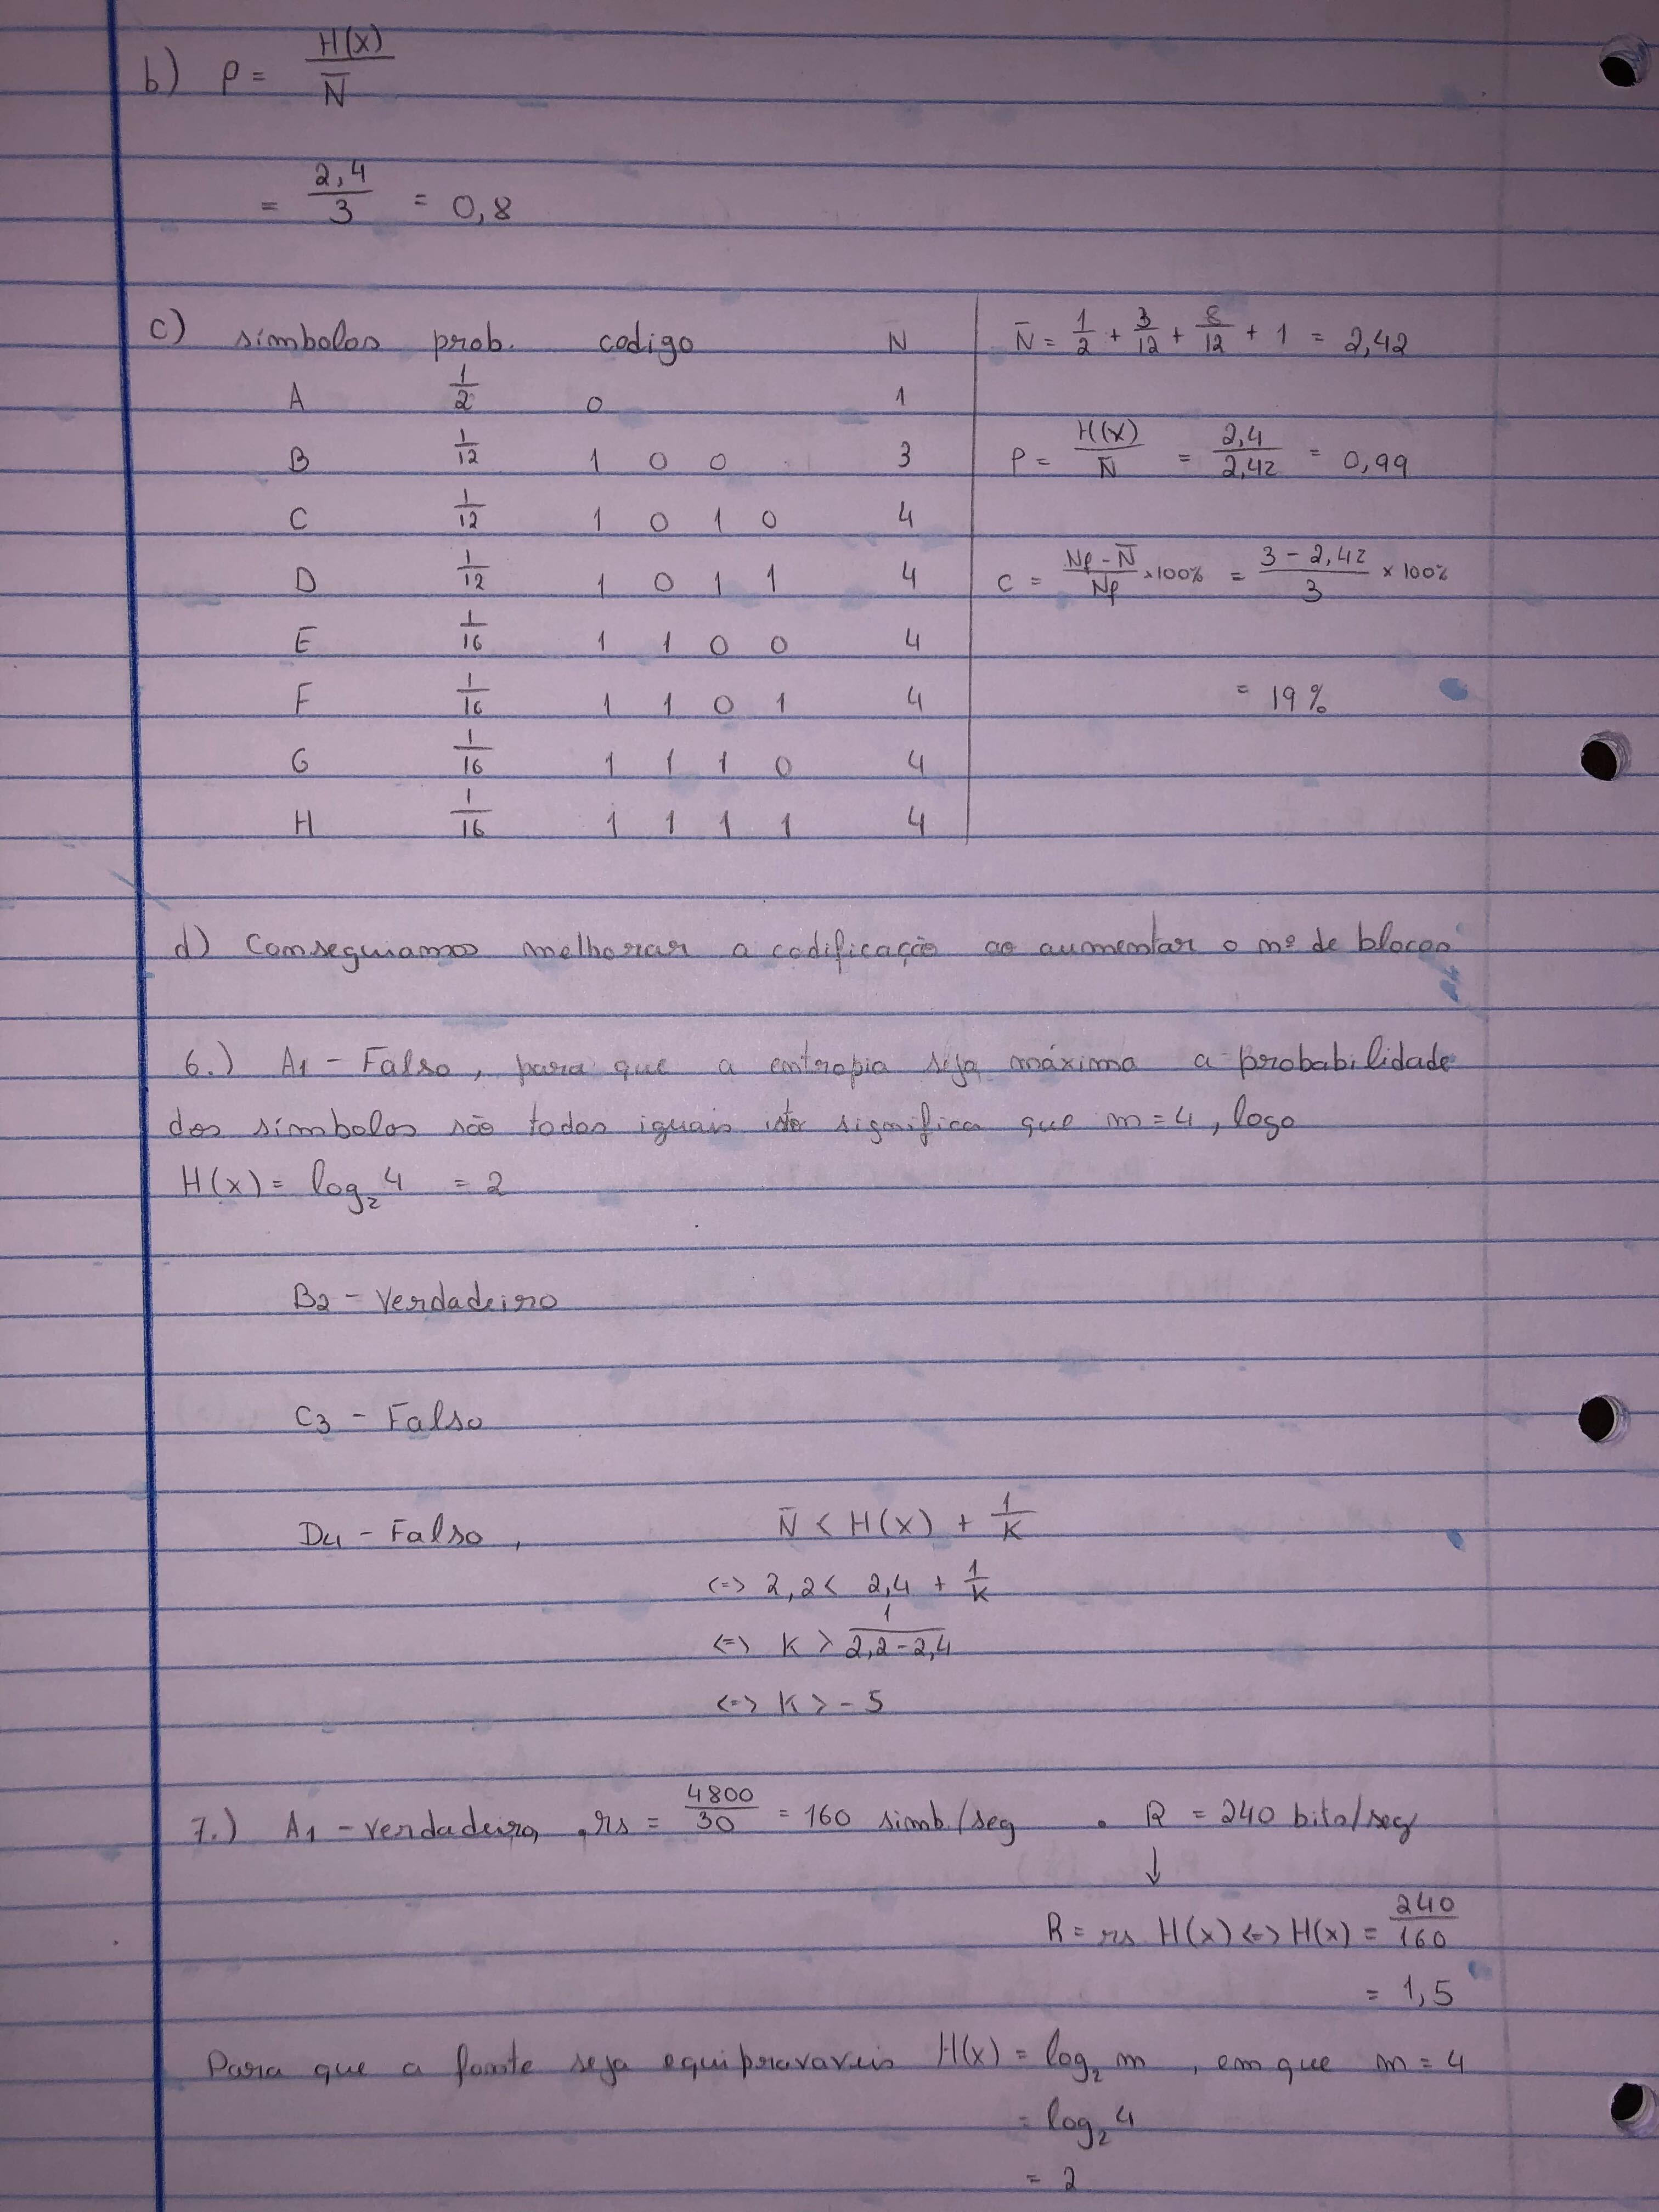 b) ρ = H(x) / N̄
= 2,4 / 3 = 0,8
c) símbolos prob. codigo N
A 1/2 0 1
B 1/12 1 0 0 3
C 1/12 1 0 1 0 4
D 1/12 1 0 1 1 4
E 1/16 1 1 0 0 4
F 1/16 1 1 0 1 4
G 1/16 1 1 1 0 4
H 1/16 1 1 1 1 4
N̄ = 1/2 + 3/12 + 8/12 + 1 = 2,42
ρ = H(x) / N̄ = 2,4 / 2,42 = 0,99
C = (Nf - N̄) / Nf × 100% = (3 - 2,42) / 3 × 100%
= 19 %
d) Conseguiamos melhorar a codificação ao aumentar o nº de blocos
6.) A1 - Falso, para que a entropia seja máxima a probabilidade
dos símbolos são todas iguais isto significa que m = 4, logo
H(x) = log₂ 4 = 2
B2 - Verdadeiro
C3 - Falso
D4 - Falso, N̄ < H(x) + 1/K
<=> 2,2 < 2,4 + 1/K
<=> K > 1 / (2,2 - 2,4)
<=> K > - 5
7.) A1 - Verdadeiro, . rs = 4800 / 30 = 160 simb/seg . R = 240 bits/seg
↓
R = rs H(x) <=> H(x) = 240 / 160
= 1,5
Para que a fonte seja equipravaveis H(x) = log₂ m, em que m = 4
= log₂ 4
= 2